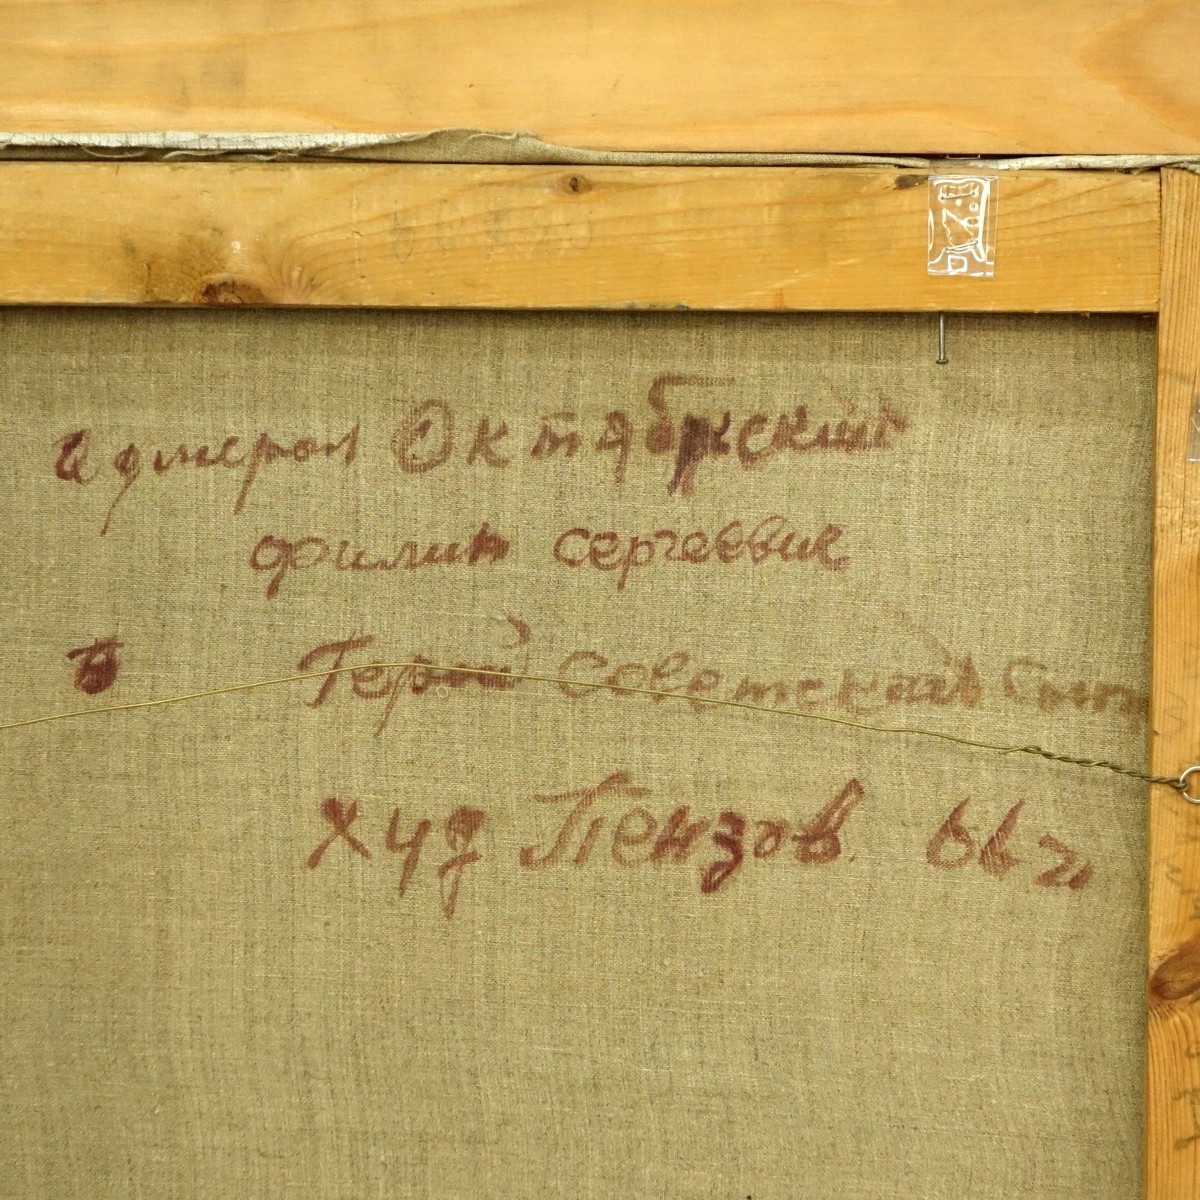 адмирал Октябрьский
филип сергеевич
Герой Советский Союз
худ Пензов 66 г